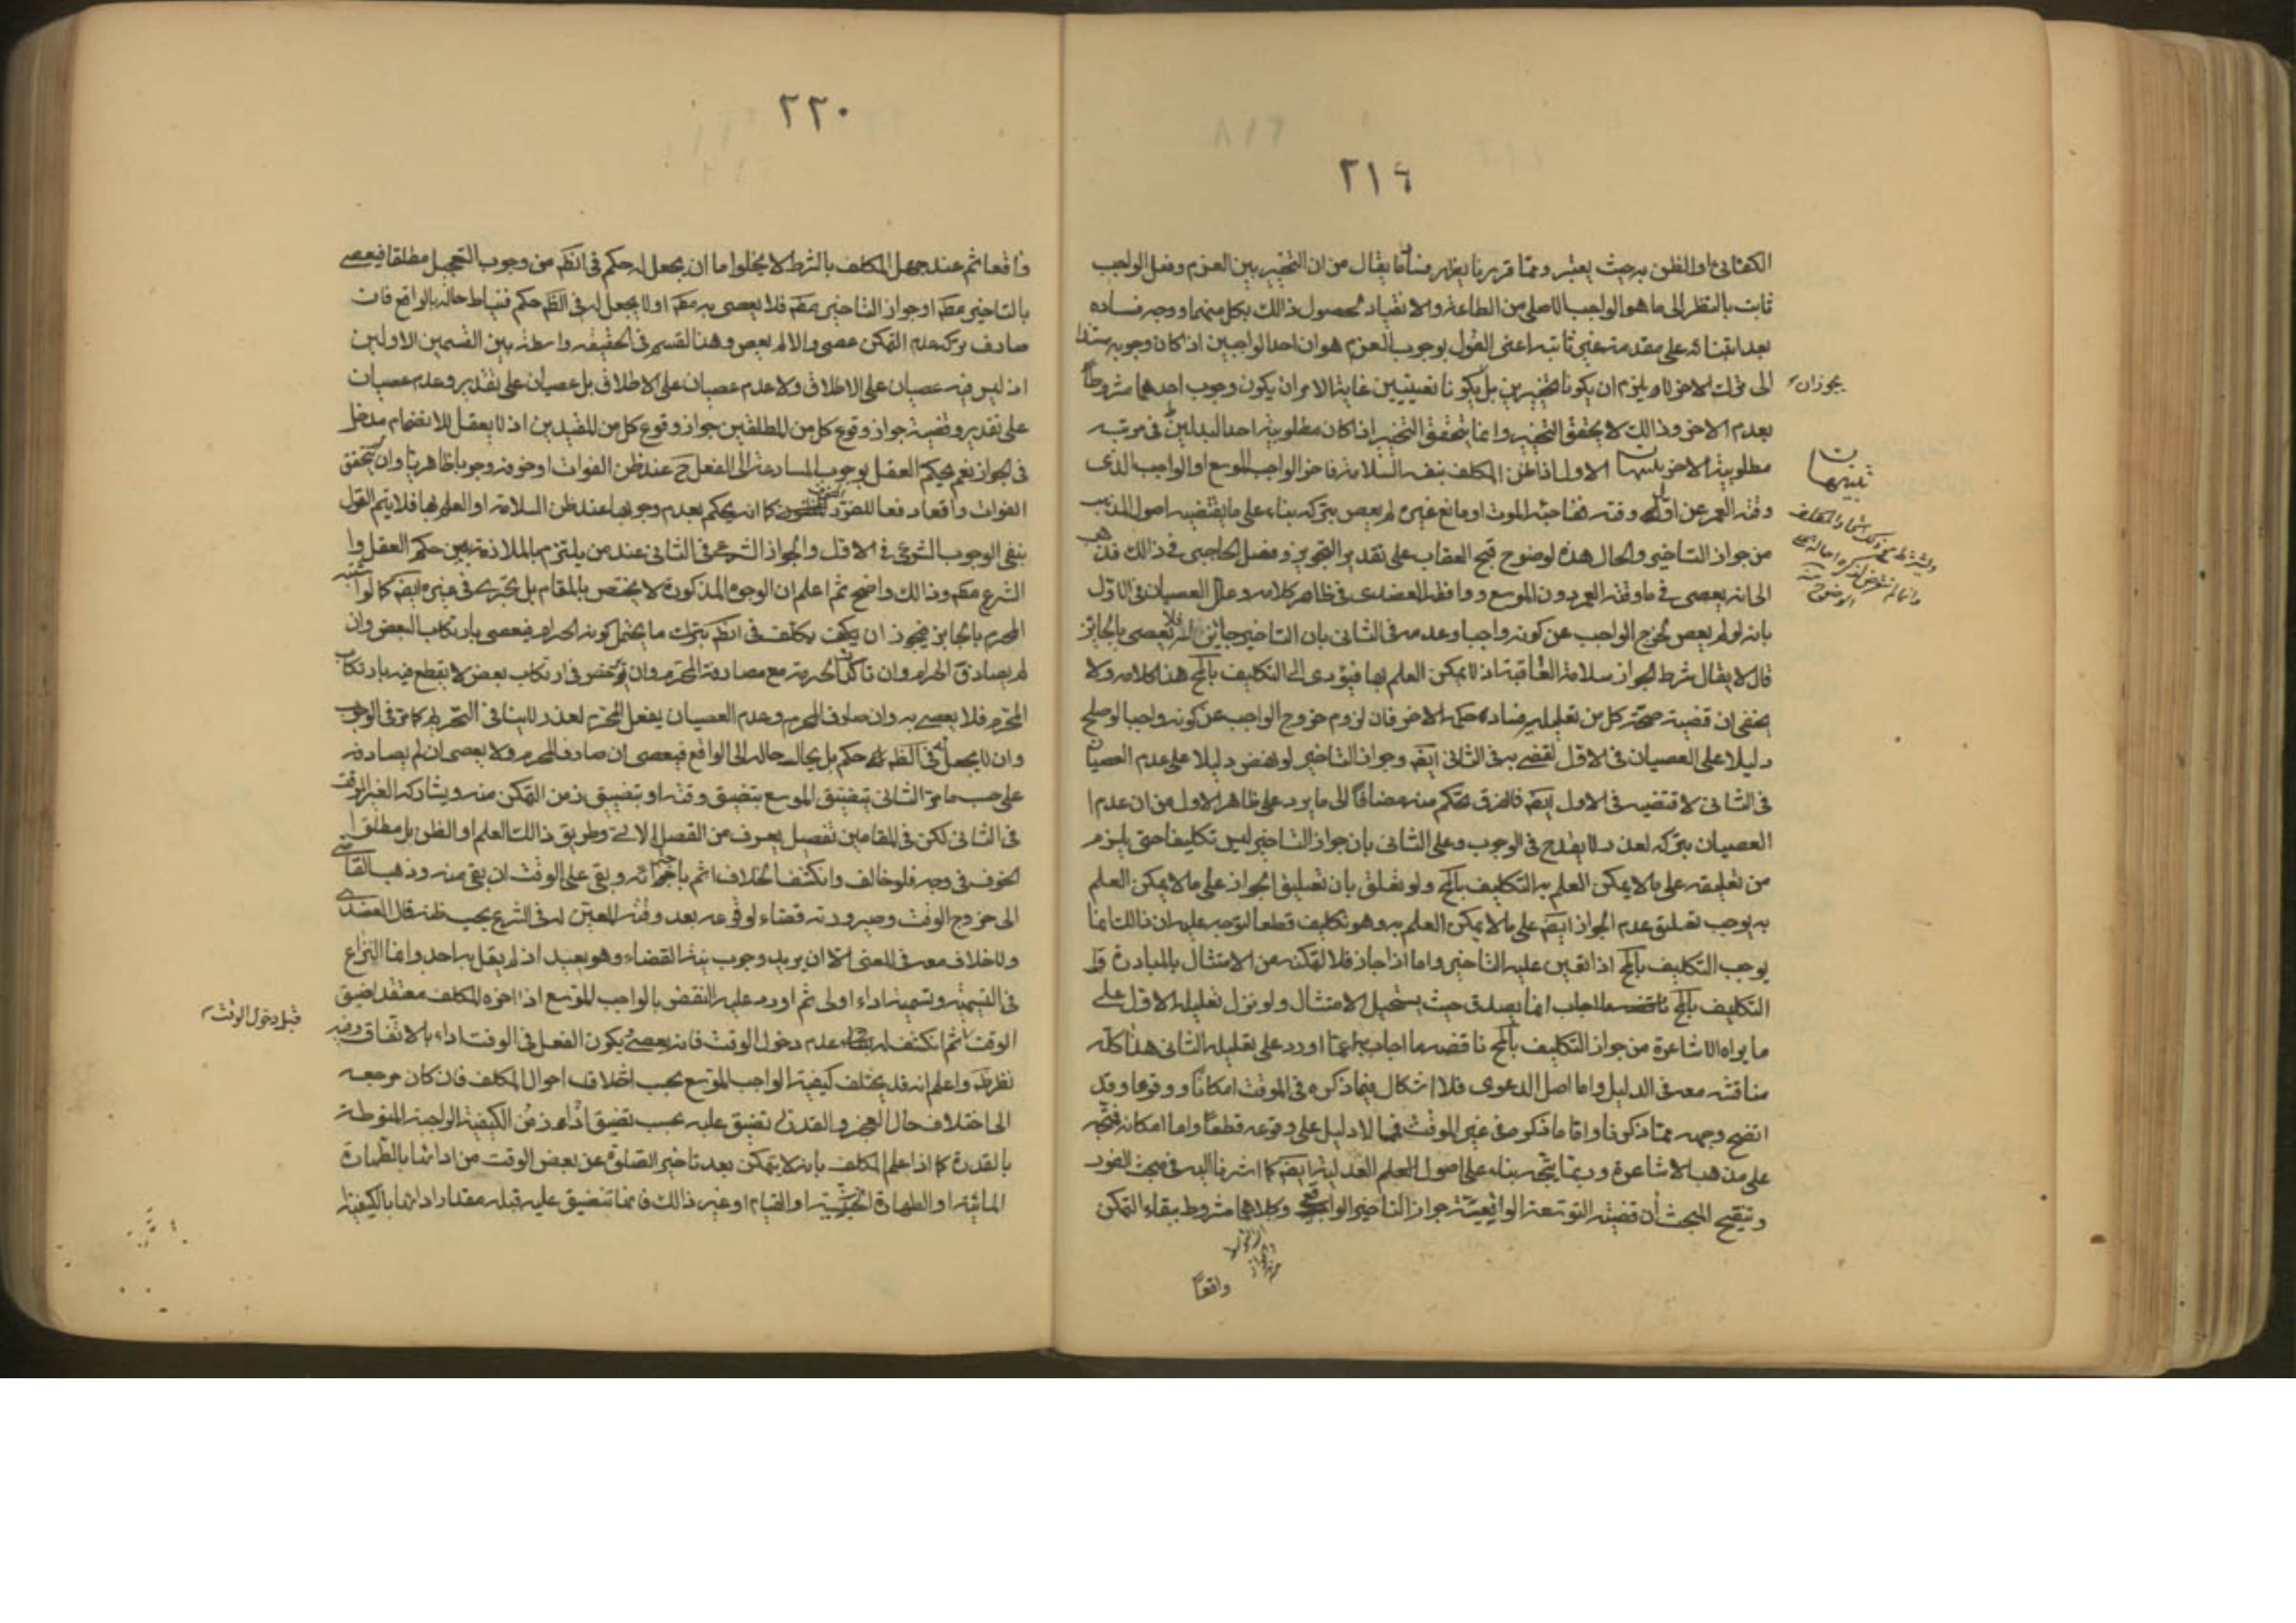 ٢١٩
الكفائي او الظن به حيث يعتبر ومما قررنا يظهر فساد ما يقال من ان التخيير بين العزم وفعل الواجب
ثابت بالنظر الى ما هو الواجب الاصلى من الطاعة والانقياد لحصول ذالك بكل منهما ووجه فساده
بعد ابتنائه على مقدمة غير ثابتة اعنى القول بوجوب العزم هو ان احد الواجبين اذا كان وجوبه مستندا
الى فوات الاخر لا يلزم ان يكونا تخييرين بل يكونا تعيينيين غاية الامر ان يكون وجوب احدهما مشروطا
يجوز ان
بعدم الاخر وذالك لا يحقق التخيير وانما يتحقق التخيير اذا كان مطلوبية احد البدلين فى مرتبة
مطلوبية الاخر تنبيهات الاول اذا ظن المكلف بنفسه السلامة فاخر الواجب الموسع او الواجب الذى
تنبيهات
وقته العمر عن اول وقته ففاجئه الموت او مانع غيره لم يعص بتركه بناء على ما يقتضيه اصول المذهب
من جواز التاخير والحال هذه لوضوح قبح العقاب على تقدير التجويز وفصل الحاجبى فى ذالك فذهب
الى انه يعصى فى ما وقته العمر دون الموسع ووافقه العضدى فى ظاهر كلامه وعلل العصيان فى الاول
بانه لو لم يعص لخرج الواجب عن كونه واجبا وعدمه فى الثانى بان التاخير جائز فلا يعصى بالجائز
قال لا يقال شرط الجواز سلامة العاقبة اذ لا يمكن العلم بها فيؤدى الى التكليف بالمح هذا كلامه ولا
يخفى ان قضية صحة كل من تعليليه فساد حكمه الاخر فان لزوم خروج الواجب عن كونه واجبا لو صلح
دليلا على العصيان فى الاول لقضى به فى الثانى ايضا وجواز التاخير لو نهض دليلا على عدم العصيان
فى الثانى لاقتضيه فى الاول ايضا فالفرق تحكم منه مضافا الى ما يرد على ظاهر الاول من ان عدم
العصيان بتركه لعذر لا يقدح فى الوجوب وعلى الثانى بان جواز التاخير ليس تكليفا حتى يلزم
من تعليقه على ما لا يمكن العلم به التكليف بالمح ولو تعلق بان تعليق الجواز على ما لا يمكن العلم
به يوجب تعليق عدم الجواز ايضا على ما لا يمكن العلم به وهو تكليف قطعا لتوجه عليه ان ذالك انما
يوجب التكليف بالمح اذا تعين عليه التاخير واما اذا جاز فلا لتمكنه من الامتثال بالمبادرة
التكليف بالمح انما يصدق حيث يستحيل الامتثال ولو نزل تعليله الاول على
ما يراه الاشاعرة من جواز التكليف بالمح ناقضه ما اجاب به عما اورد على تعليله الثانى هذا كله
مناقشة معه فى الدليل واما اصل الدعوى فلا اشكال فيما ذكره فى الموقت امكانا ووقوعا وقد
اتضح وجهه مما ذكرنا واما ما ذكره فى غير الموقت فمما لا دليل على وقوعه قطعا واما امكانه فمتجه
على مذهب الاشاعرة وربما يتجه بناء على اصول العدلية ايضا كما اشرنا اليه فى مبحث الفور
وتنقيح المبحث ان قضية التوسعة الواقعية جواز التاخير الواقعى وكلاهما مشروط ببقاء التمكن
واقعا
٢٢٠
واقعا ثم عند جهل المكلف بالشرط لا يخلو اما ان يجعل له حكم فى الظ من وجوب التعجيل مطلقا فيعصى
بالتاخير مط او جواز التاخير مط فلا يعصى به مط او لا يجعل له فى الظ حكم فيناط حاله بالواقع فان
صادف تركه عدم التمكن عصى والا لم يعص وهذا القسم فى الحقيقة واسطة بين القسمين الاولين
اذ ليس فيه عصيان على الاطلاق ولا عدم عصيان على الاطلاق بل عصيان على تقدير وعدم عصيان
على تقدير وقضية جواز وقوع كل من المطلقين جواز وقوع كل من المقيدين اذ لا يعقل للانضمام مدخل
فى الجواز نعم يحكم العقل بوجوب المسارعة الى الفعل ح عند ظن الفوات او خوفه وجوبا ظاهريا وان لم يتحقق
الفوات واقعا دفعا للضرر كما انه يحكم بعدم وجوبها عند ظن السلامة او العلم بها فلا يتم القول
بنفى الوجوب الشرعى فى الاول والجواز الشرعى فى الثانى عند من يلتزم بالملازمة بين حكم العقل و
الشرع مط وذالك واضح ثم اعلم ان الوجوه المذكورة لا يختص بالمقام بل يجرى فى غيره ايضا كما لو اشتبه
المحرم بالجائز فيجوز ان يكلف فى الظ بترك ما يحتمل كونه الحرام فيعصى بارتكاب البعض وان
لم يصادف الحرام وان تاكد الحرمة مع مصادفة المحرم وان يرخص فى ارتكاب بعض لا يقطع فيه بارتكاب
المحرم فلا يعصى به وان صادف المحرم وعدم العصيان بفعل المحرم لعذر لا ينافى التحريم كما مر فى الوجوب
وان لا يجعل له فى الظ حكم بل يحال حاله الى الواقع فيعصى ان صادف المحرم ولا يعصى ان لم يصادفه
على حسب ما مر الثانى يتضيق الموسع بتضيق وقته او بتضيق زمن التمكن منه ويشاركه الغير الموقت
فى الثانى لكن فى المقامين تفصيل يعرف من الفصل الاتى وطريق ذالك العلم او الظن بل مطلق
الخوف فى وجه فلو خالف وانكشف الخلاف اثم باجترائه وبقى على الوقت ان بقى منه وذهب القاضى
الى خروج الوقت وصيرورته قضاء لوقوعه بعد وقته المعين له فى الشرع بحسب ظنه قال العضدى
ولا خلاف معه فى المعنى الا ان يريد وجوب نية القضاء وهو بعيد اذ لم يقل به احد وانما النزاع
فى التسمية وتسميته اداء اولى ثم اورد عليه النقض بالواجب الموسع اذا اخره المكلف معتقد اضيق
قبل دخول الوقت
الوقت ثم انكشف له عدم دخول الوقت فانه يعصى ويكون الفعل فى الوقت اداء بالاتفاق وفيه
نظر واعلم انه قد يختلف كيفية الواجب الموسع بحسب اختلاف احوال المكلف فان كان مرجعه
الى اختلاف حال العجز والقدرة تضيق عليه بحسب تضيق زمن الكيفية الواجبة المنوطة
بالقدرة كما اذا علم المكلف بانه لا يتمكن بعد تاخير الصلوة عن بعض الوقت من ادائها بالطهارة
المائية او الطهارة الخبثية او القيام او غير ذالك فانما تتضيق عليه قبله مقدار ادائها بالكيفية